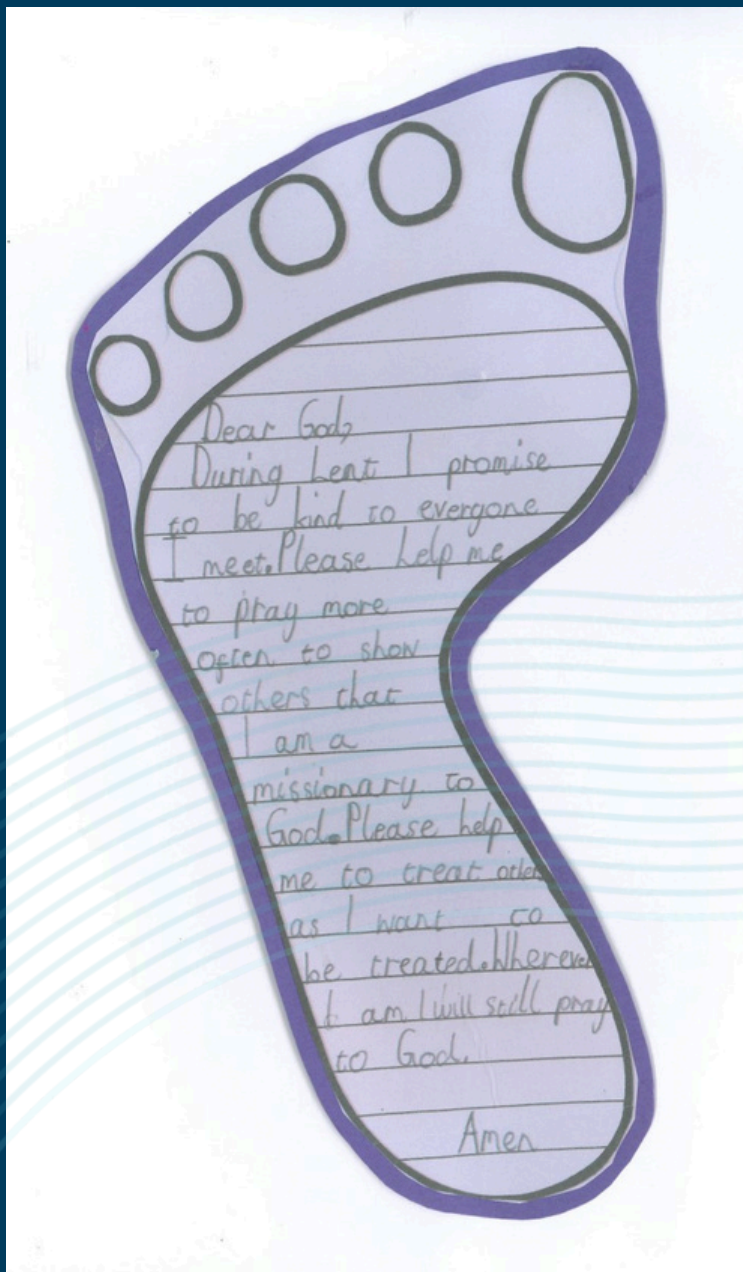 Dear God,
During Lent I promise
to be kind to everyone
I meet. Please help me
to pray more
often to show
others that
I am a
missionary to
God. Please help
me to treat other
as I want to
be treated. Wherever
I am I will still pray
to God.
Amen